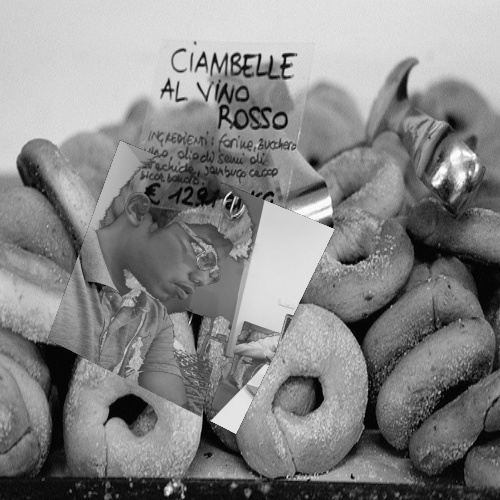 CIAMBELLE
AL VINO
ROSSO
INGREDIENTI: farine, zucchero
vino, olio di semi di
arachide, sambuco cacao
€ 12,